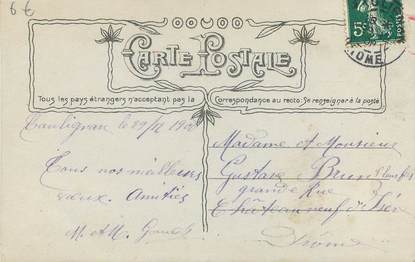 6 €
CARTE POSTALE
Tous les pays étrangers n'acceptant pas la Correspondance au recto: Se renseigner à la poste
Taulignan le 29/12
Tous nos meilleurs
vœux. Amitiés
M. et M.
Madame et Monsieur
Gustave Brun
grande Rue
Châteauneuf d'Isère
Drôme
5
DROME